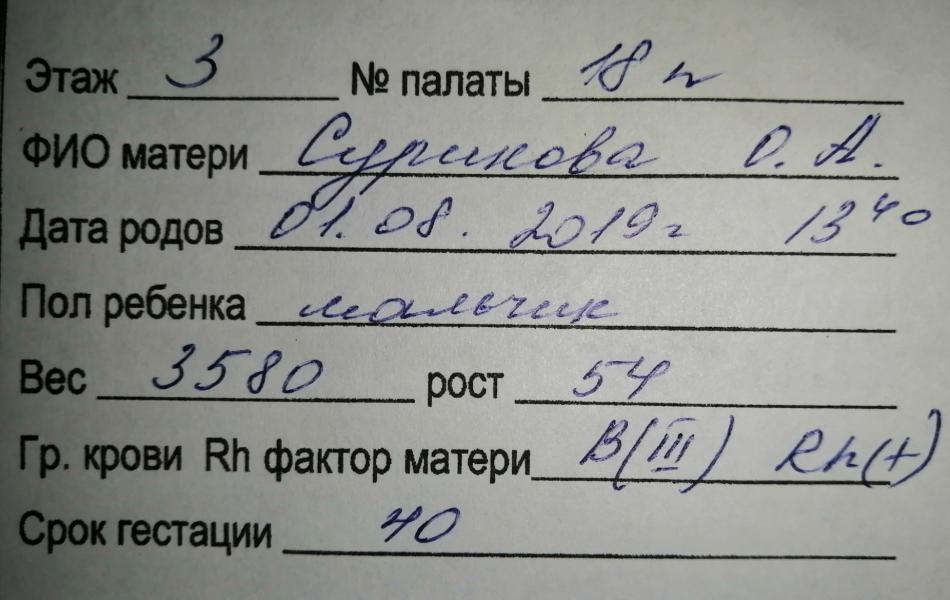 Этаж 3 № палаты 18 п
ФИО матери Сурикова О. А.
Дата родов 01.08. 2019 г 13 40
Пол ребенка мальчик
Вес 3580 рост 54
Гр. крови Rh фактор матери B(III) Rh(+)
Срок гестации 40